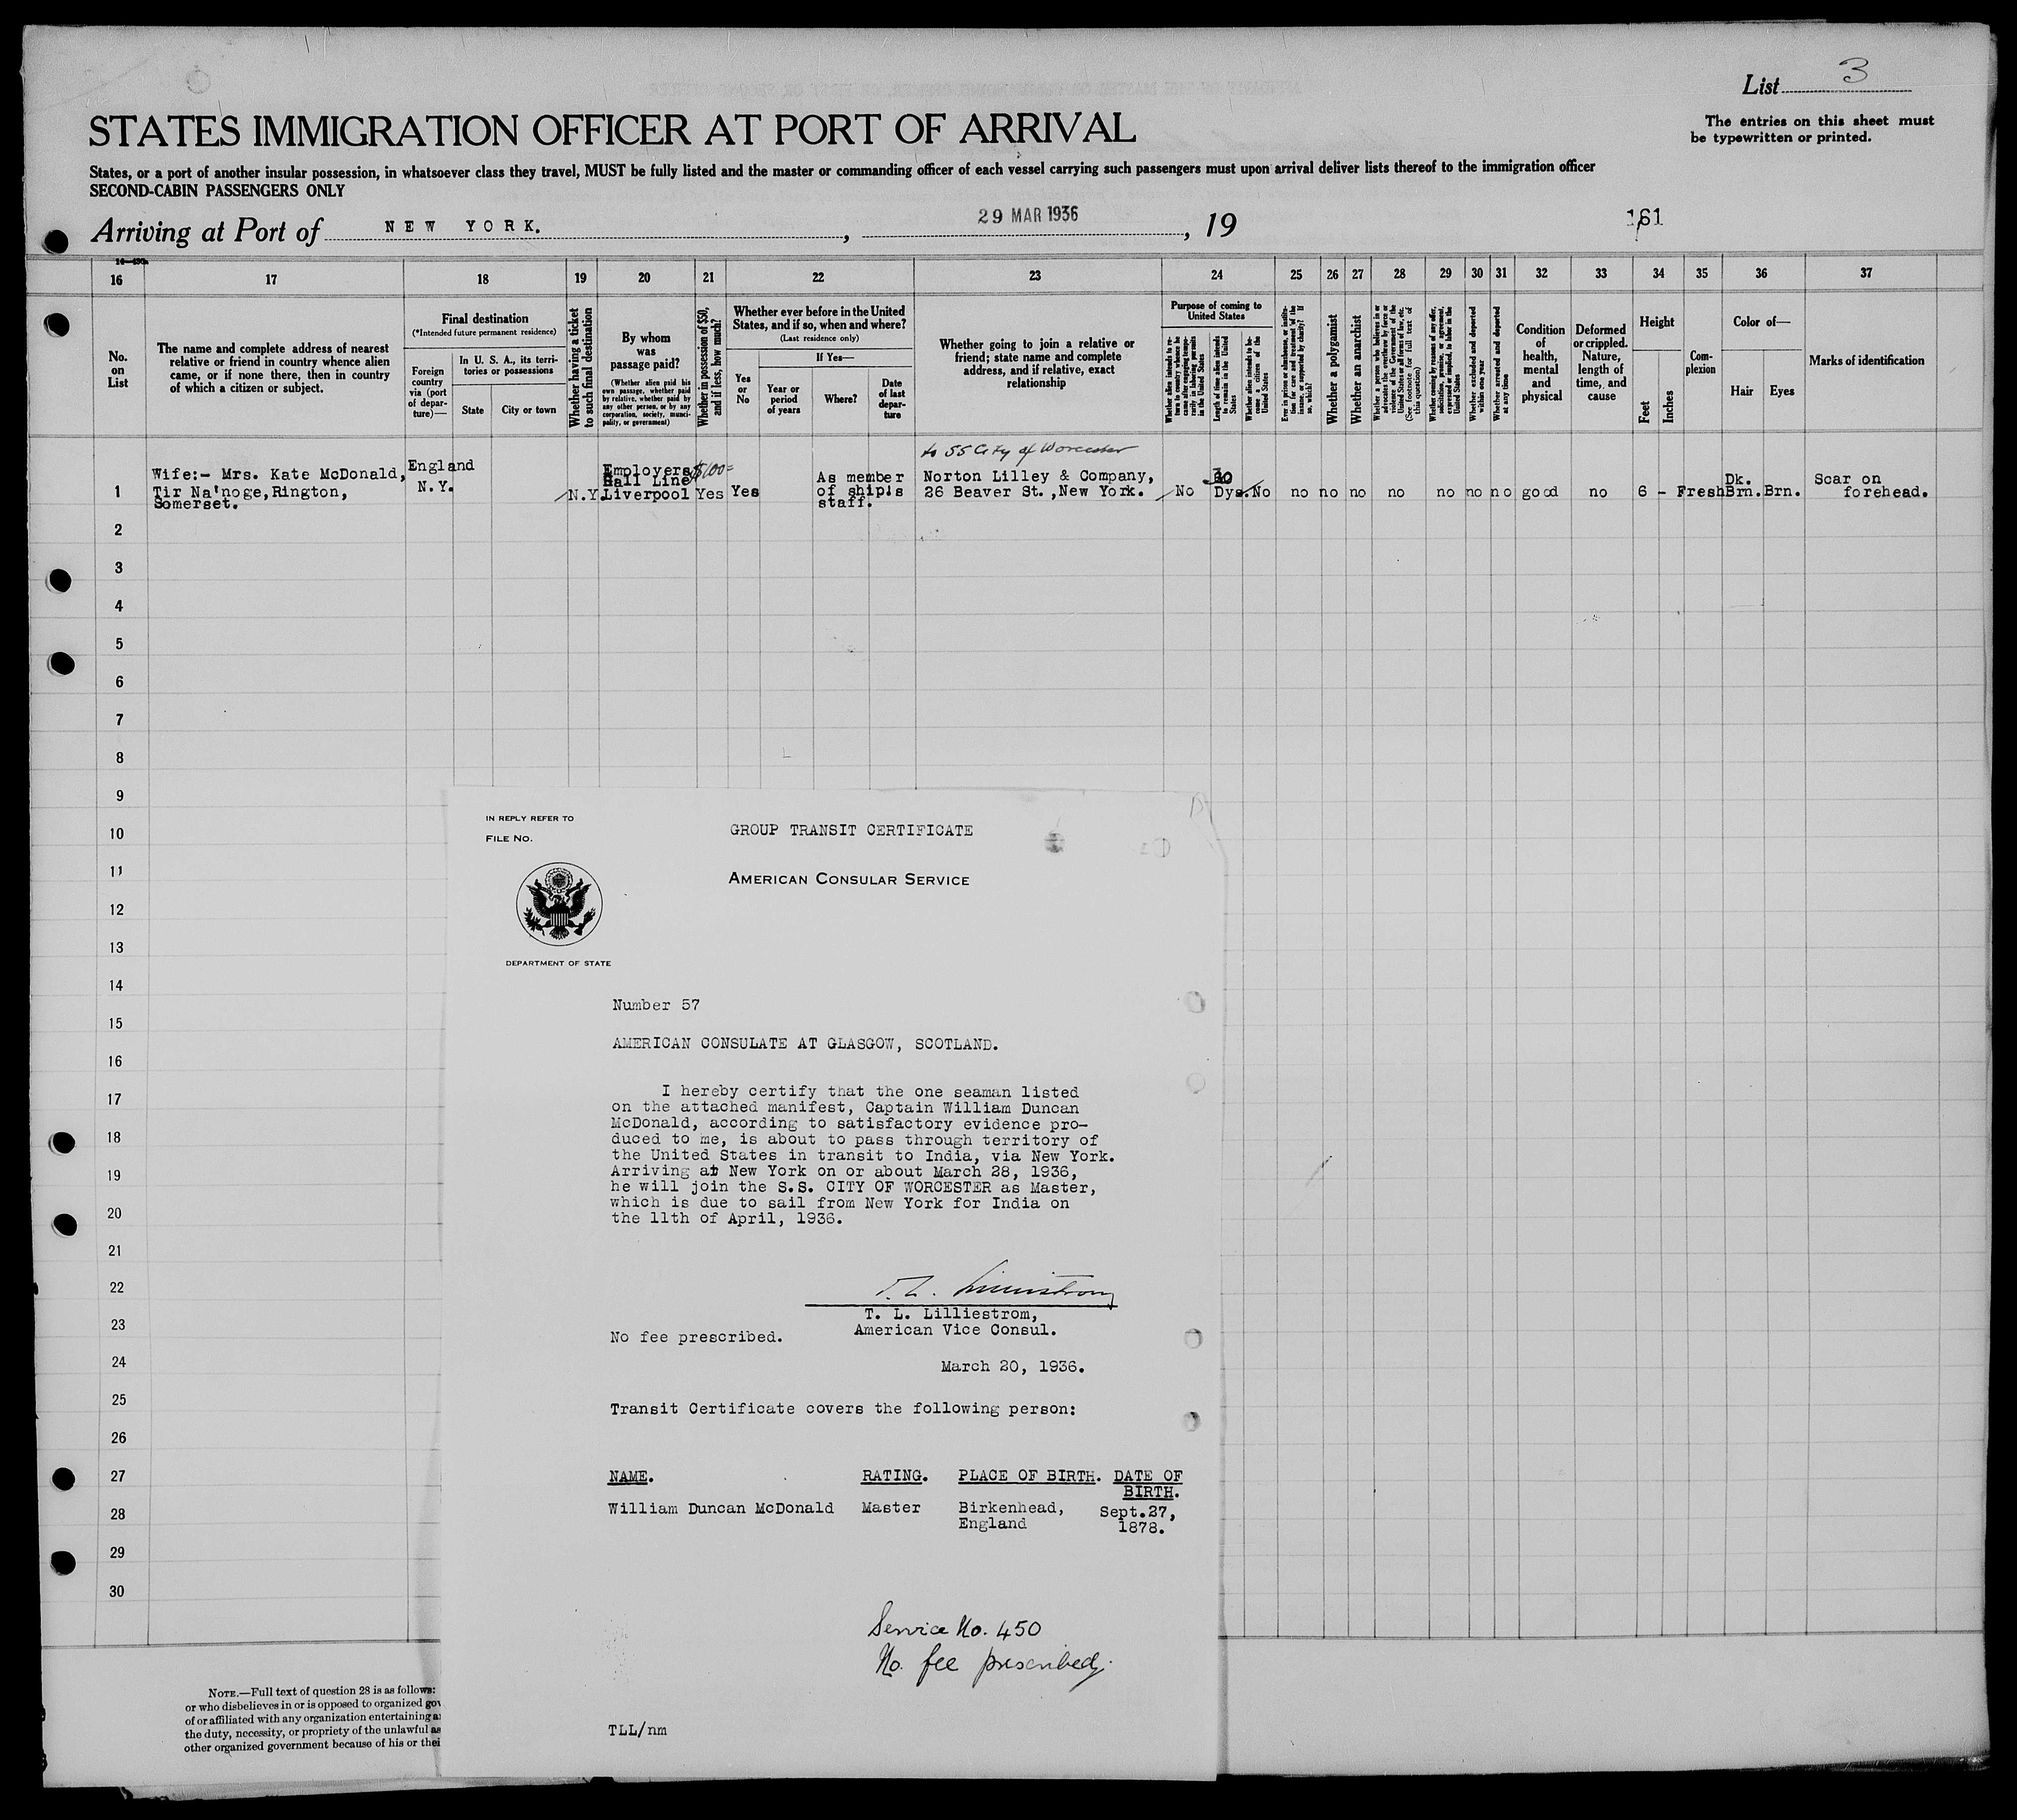 List 3
The entries on this sheet must
be typewritten or printed.
STATES IMMIGRATION OFFICER AT PORT OF ARRIVAL
States, or a port of another insular possession, in whatsoever class they travel, MUST be fully listed and the master or commanding officer of each vessel carrying such passengers must upon arrival deliver lists thereof to the immigration officer
SECOND-CABIN PASSENGERS ONLY
Arriving at Port of NEW YORK. , 29 MAR 1936 , 19
161
16 17 18 19 20 21 22 23 24 25 26 27 28 29 30 31 32 33 34 35 36 37
No.
on
List
The name and complete address of nearest
relative or friend in country whence alien
came, or if none there, then in country
of which a citizen or subject.
Final destination
(*Intended future permanent residence)
Foreign
country
via (port
of depar-
ture)—
In U. S. A., its terri-
tories or possessions
State
City or town
Whether having a ticket
to such final destination
By whom
was
passage paid?
(Whether alien paid his
own passage, whether paid
by relative, whether paid by
any other person, or by any
corporation, society, munici-
pality, or government)
Whether in possession of $50,
and if less, how much?
Whether ever before in the United
States, and if so, when and where?
(Last residence only)
Yes
or
No
If Yes—
Year or
period
of years
Where?
Date
of last
depar-
ture
Whether going to join a relative or
friend; state name and complete
address, and if relative, exact
relationship
Purpose of coming to
United States
Whether alien intends to re-
turn to country whence he
came after engaging tempo-
rarily in laboring pursuits
in the United States
Length of time alien intends
to remain in the United
States
Whether alien intends to be-
come a citizen of the
United States
Ever in prison or almshouse, or institu-
tion for care and treatment of the
insane, or supported by charity? If
so, which?
Whether a polygamist
Whether an anarchist
Whether a person who believes in or
advocates the overthrow by force or
violence of the Government of the
United States or all forms of law, etc.
(See footnote for full text of
this question)
Whether coming by reasons of any offer,
solicitation, promise, or agreement,
expressed or implied, to labor in the
United States
Whether excluded and deported
within one year
Whether arrested and deported
at any time
Condition
of
health,
mental
and
physical
Deformed
or crippled.
Nature,
length of
time, and
cause
Height
Feet
Inches
Com-
plexion
Color of—
Hair
Eyes
Marks of identification
to SS City of Worcester
1
Wife:- Mrs. Kate McDonald,
Tir Na'noge, Rington,
Somerset.
England
N.Y.
N.Y.
Employers
Hall Line
Liverpool
$100=
Yes
Yes
As member
of ship's
staff.
Norton Lilley & Company,
26 Beaver St., New York.
No
30
Dys.
No no no no no no no no good no 6 - Fresh
Dk.
Brn. Brn.
Scar on
forehead.
2
3
4
5
6
7
8
9
10
11
12
13
14
15
16
17
18
19
20
21
22
23
24
25
26
27
28
29
30
IN REPLY REFER TO
FILE NO.
GROUP TRANSIT CERTIFICATE
AMERICAN CONSULAR SERVICE
DEPARTMENT OF STATE
Number 57
AMERICAN CONSULATE AT GLASGOW, SCOTLAND.
I hereby certify that the one seaman listed
on the attached manifest, Captain William Duncan
McDonald, according to satisfactory evidence pro-
duced to me, is about to pass through territory of
the United States in transit to India, via New York.
Arriving at New York on or about March 28, 1936,
he will join the S.S. CITY OF WORCESTER as Master,
which is due to sail from New York for India on
the 11th of April, 1936.
T. L. Lilliestrom
T. L. Lilliestrom,
American Vice Consul.
No fee prescribed.
March 20, 1936.
Transit Certificate covers the following person:
NAME. RATING. PLACE OF BIRTH. DATE OF
BIRTH.
William Duncan McDonald Master Birkenhead,
England
Sept.27,
1878.
Service No. 450
No. fee prescribed.
TLL/nm
NOTE.—Full text of question 28 is as follows:
or who disbelieves in or is opposed to organized gov
of or affiliated with any organization entertaining a
the duty, necessity, or propriety of the unlawful as
other organized government because of his or thei